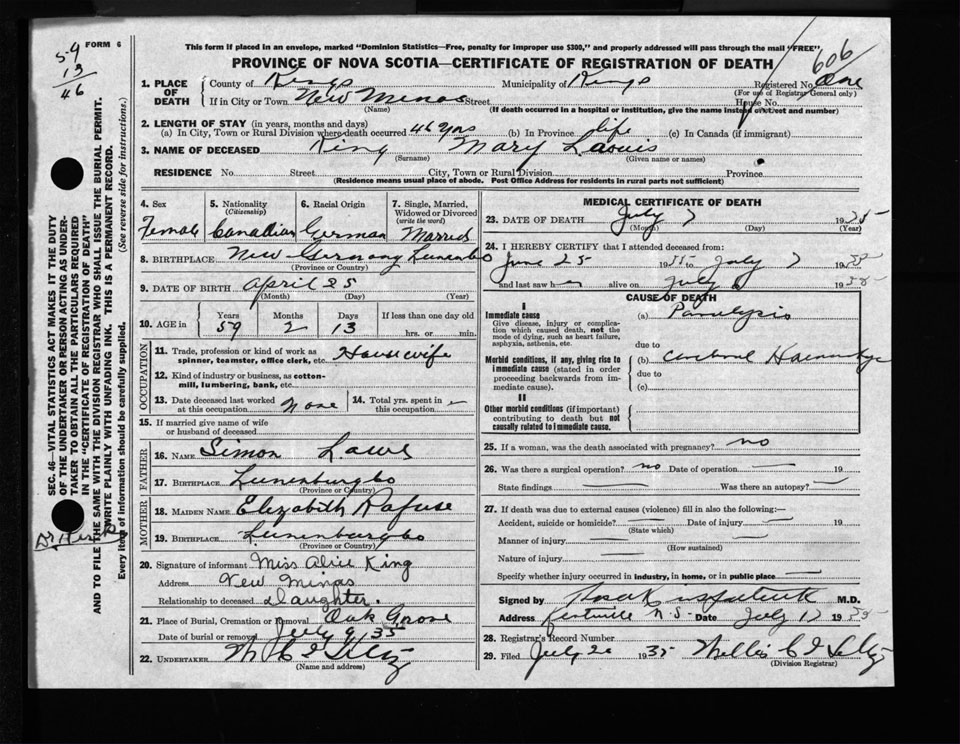 59
13
46
FORM 6
This form if placed in an envelope, marked "Dominion Statistics—Free, penalty for improper use $300," and properly addressed will pass through the mail "FREE"
PROVINCE OF NOVA SCOTIA—CERTIFICATE OF REGISTRATION OF DEATH
606
1. PLACE OF DEATH County of Kings Municipality of Kings Registered No. One
(For use of Registrar General only)
If in City or Town New Minas Street House No.
(Name) (If death occurred in a hospital or institution, give the name instead of street and number)
2. LENGTH OF STAY (in years, months and days)
(a) In City, Town or Rural Division where death occurred 46 yrs (b) In Province life (c) In Canada (if immigrant)
3. NAME OF DECEASED King Mary
(Surname) (Given name or names)
RESIDENCE No. Street City, Town or Rural Division Province
(Residence means usual place of abode. Post Office Address for residents in rural parts not sufficient)
4. Sex 5. Nationality (Citizenship) 6. Racial Origin 7. Single, Married, Widowed or Divorced (write the word)
Female Canadian German Married
8. BIRTHPLACE New Germany
(Province or Country)
9. DATE OF BIRTH April 25
(Month) (Day) (Year)
10. AGE in Years Months Days If less than one day old
59 2 13 hrs. or min.
OCCUPATION
11. Trade, profession or kind of work as spinner, teamster, office clerk, etc. Housewife
12. Kind of industry or business, as cotton-mill, lumbering, bank, etc.
13. Date deceased last worked at this occupation None 14. Total yrs. spent in this occupation —
15. If married give name of wife or husband of deceased
FATHER
16. NAME Simon
17. BIRTHPLACE Lunenburg Co
(Province or Country)
MOTHER
18. MAIDEN NAME Elizabeth Rafuse
19. BIRTHPLACE Lunenburg Co
(Province or Country)
20. Signature of informant Miss Alice King
Address New Minas
Relationship to deceased Daughter.
21. Place of Burial, Cremation or Removal Oak Grove
Date of burial or removal July 9/35
22. UNDERTAKER
(Name and address)
MEDICAL CERTIFICATE OF DEATH
23. DATE OF DEATH July 7 1935
(Month) (Day) (Year)
24. I HEREBY CERTIFY that I attended deceased from:
June 25 1935 to July 7 1935
and last saw her alive on July 6 1935
CAUSE OF DEATH
I
Immediate cause (a) Paralysis
Give disease, injury or complication which caused death, not the mode of dying, such as heart failure, asphyxia, asthenia, etc.
due to
Morbid conditions, if any, giving rise to immediate cause (stated in order proceeding backwards from immediate cause).
(b) Cerebral Haemorrhage
due to
(c)
II
Other morbid conditions (if important) contributing to death but not causally related to immediate cause.
25. If a woman, was the death associated with pregnancy? no
26. Was there a surgical operation? no Date of operation — 19
State findings — Was there an autopsy? —
27. If death was due to external causes (violence) fill in also the following:—
Accident, suicide or homicide? — Date of injury — 19
(State which)
Manner of injury —
(How sustained)
Nature of injury —
Specify whether injury occurred in industry, in home, or in public place —
Signed by M.D.
Address Kentville N.S. Date July 17 1935
28. Registrar's Record Number
29. Filed July 20 1935
(Division Registrar)
SEC. 46—VITAL STATISTICS ACT MAKES IT THE DUTY
OF THE UNDERTAKER OR PERSON ACTING AS UNDER-
TAKER TO OBTAIN ALL THE PARTICULARS REQUIRED
IN THE "CERTIFICATE OF REGISTRATION OF DEATH"
AND TO FILE THE SAME WITH THE DIVISION REGISTRAR WHO SHALL ISSUE THE BURIAL PERMIT.
WRITE PLAINLY WITH UNFADING INK. THIS IS A PERMANENT RECORD.
Every item of information should be carefully supplied. (See reverse side for instructions.)